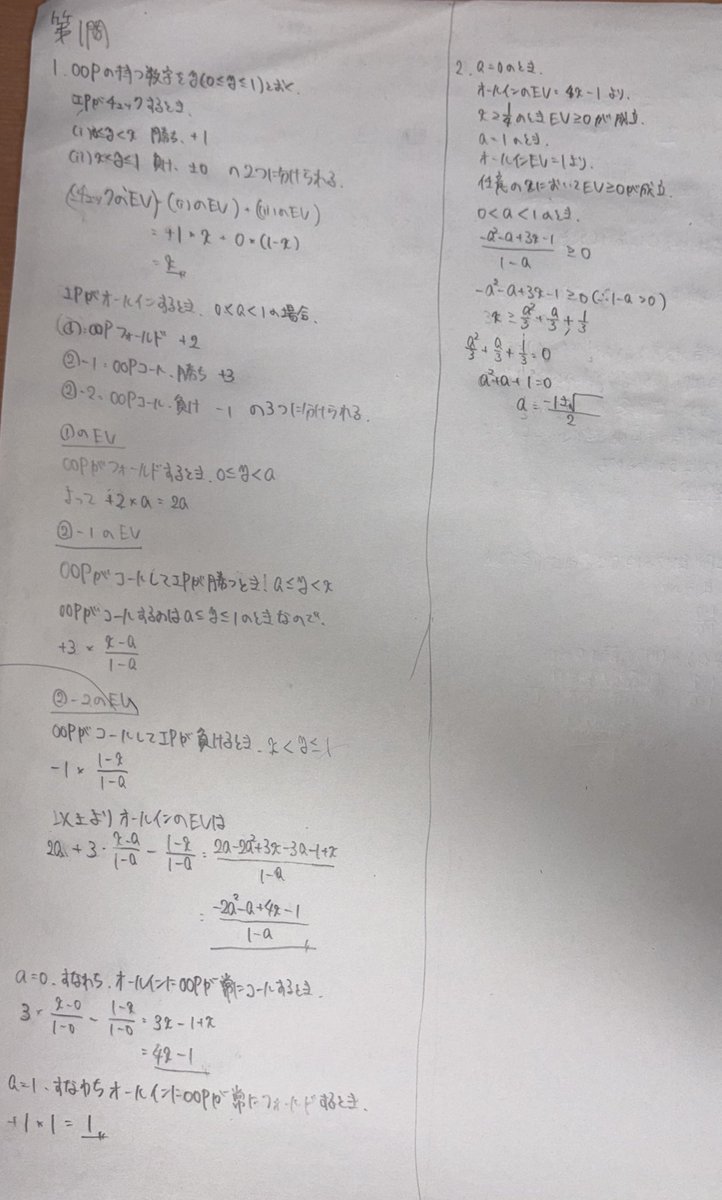 第1問
1. OOPの持つ数字をy(0≤y≤1)とおく
IPがチェックするとき.
(i) 0≤y<x 勝ち、+1
(ii) x<y≤1 負け、±0 の2つに分けられる.
(チェックのEV) = (i)のEV + (ii)のEV
= +1 × x + 0 × (1-x)
= x
IPがオールインするとき. 0<a<1の場合.
①:OOPフォールド +2
②-1:OOPコール.勝ち +3
②-2:OOPコール.負け -1 の3つに分けられる.
①のEV
OOPがフォールドするとき. 0≤y<a
よって +2×a = 2a
②-1のEV
OOPがコールしてIPが勝つとき! a≤y<x
OOPがコールするのはa≤y≤1のときなので.
+3 × (x-a)/(1-a)
②-2のEV
OOPがコールしてIPが負けるとき. x<y≤1
-1 × (1-x)/(1-a)
以上よりオールインのEVは
2a + 3・(x-a)/(1-a) - (1-x)/(1-a) = (2a-2a²+3x-3a-1+x)/(1-a)
= (-2a²-a+4x-1)/(1-a)
a=0.すなわち.オールインにOOPが常にコールするとき.
3 × (x-0)/(1-0) - (1-x)/(1-0) = 3x-1+x
= 4x-1
a=1.すなわちオールインにOOPが常にフォールドするとき.
+1×1 = 1
2. a=0のとき.
オールインのEV=4x-1より.
x≥1/4のときEV≥0が成立.
a=1のとき.
オールインEV=1より.
任意のxにおいてEV≥0が成立.
0<a<1のとき.
(-a²-a+3x-1)/(1-a) ≥ 0
-a²-a+3x-1≥0(∵1-a>0)
x ≥ a²/3 + a/3 + 1/3
a²/3 + a/3 + 1/3 = 0
a²+a+1=0
a = (-1±√ )/2